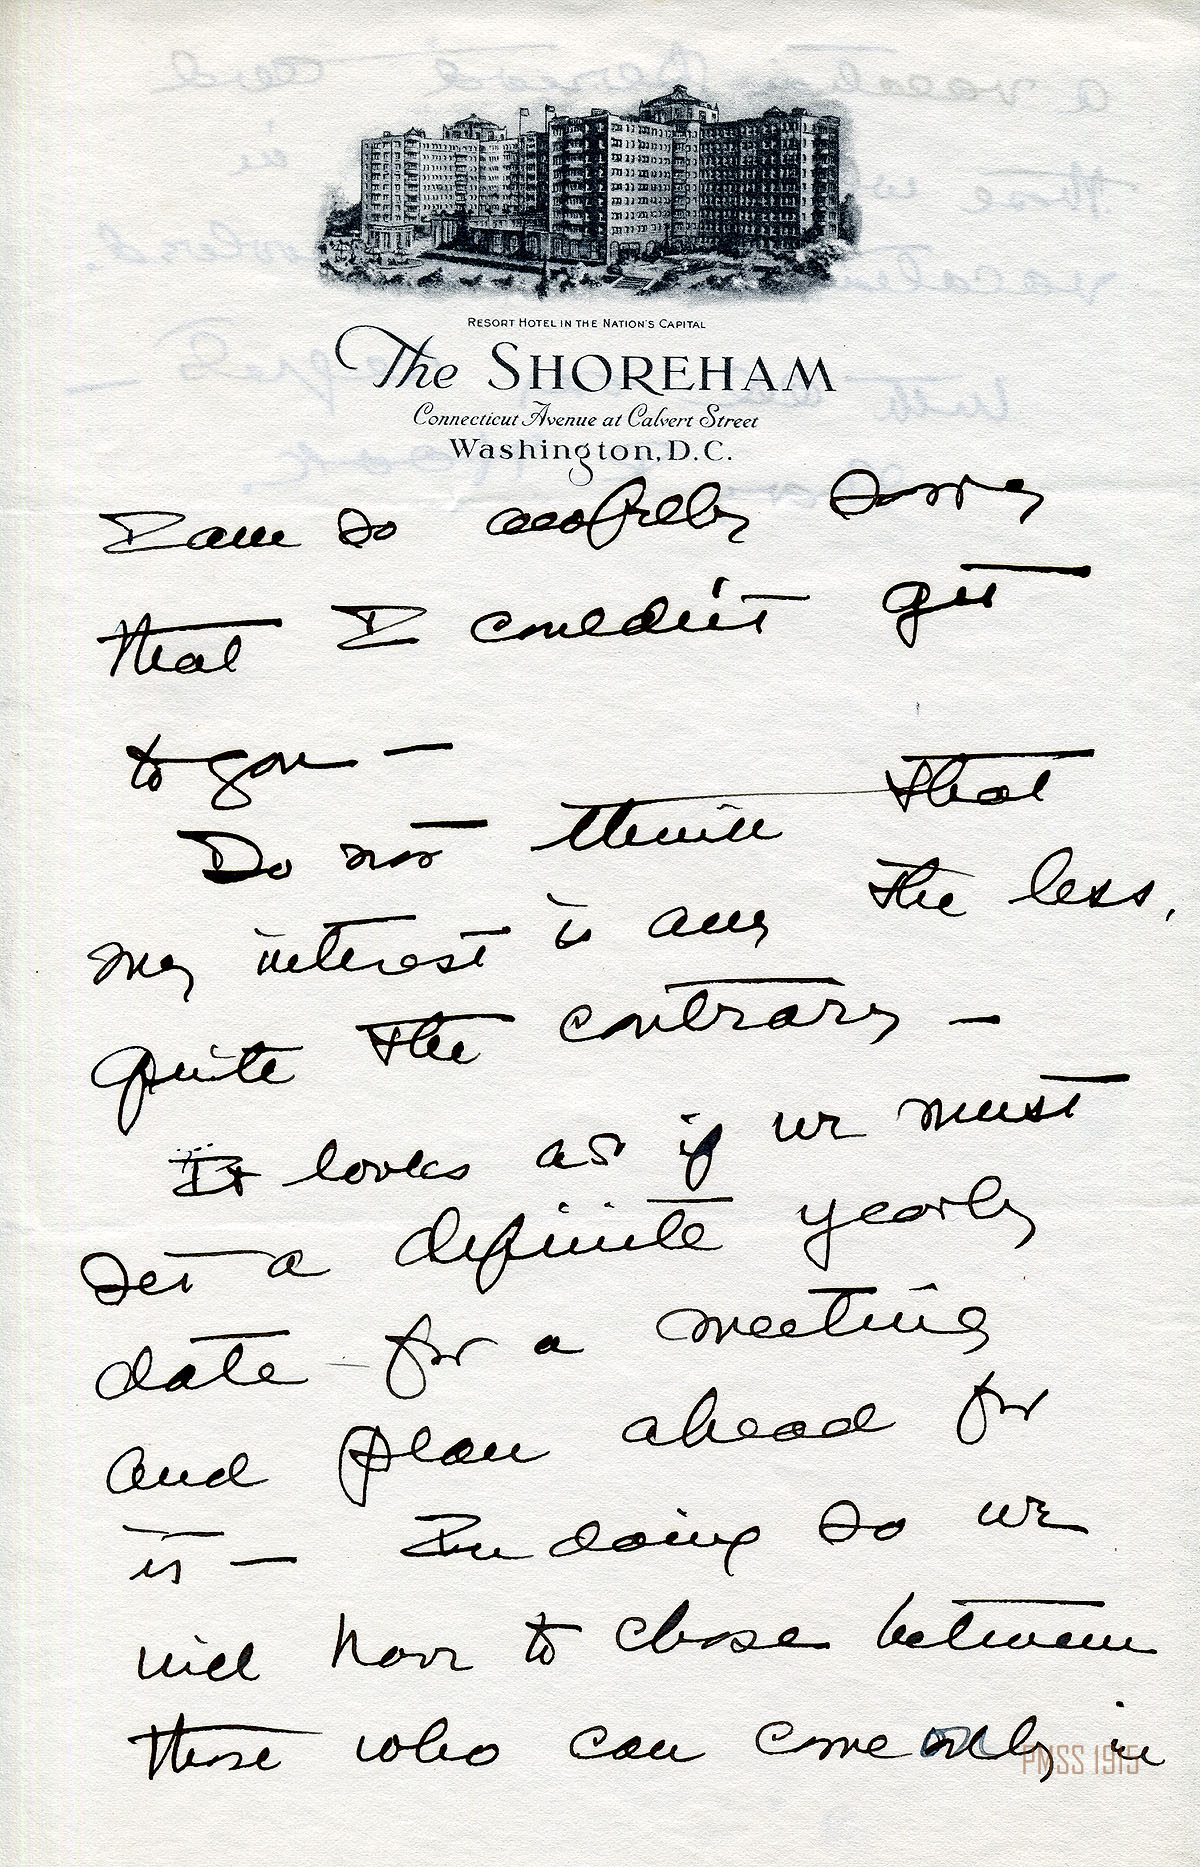 RESORT HOTEL IN THE NATION'S CAPITAL
The SHOREHAM
Connecticut Avenue at Calvert Street
Washington, D.C.
I am so awfully sorry
that I couldn't get
to you —
Do not think that
my interest is any the less,
quite the contrary —
It looks as if we must
set a definite yearly
date for a meeting
and plan ahead for
it — In doing so we
will have to chose between
those who can come only in
PMSS 1915